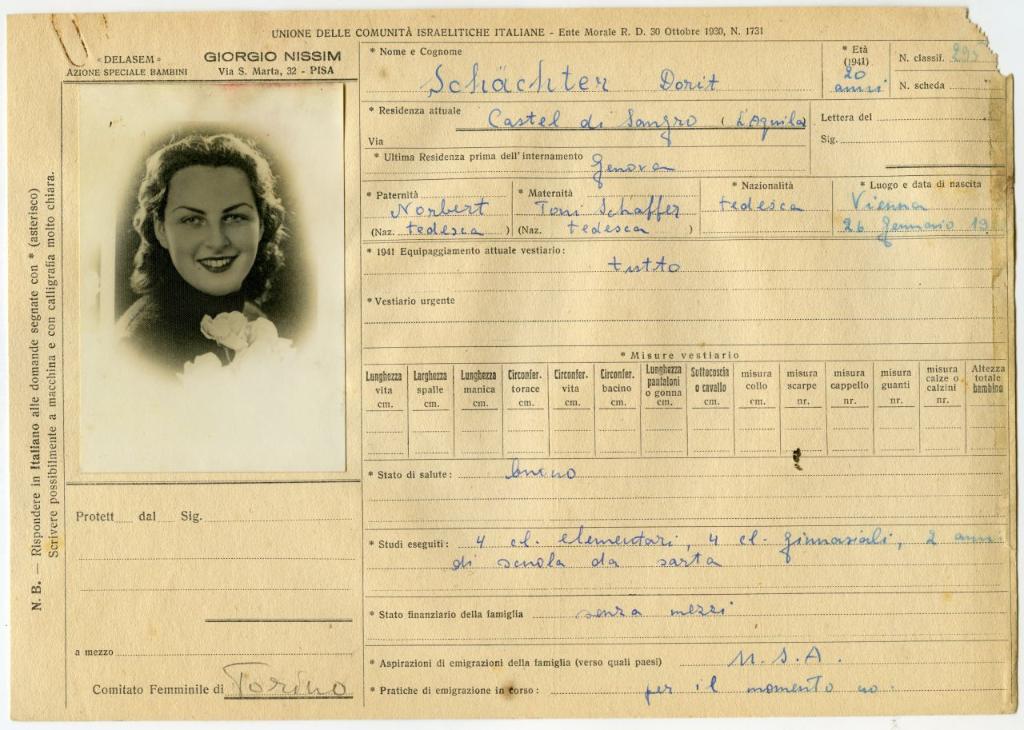 UNIONE DELLE COMUNITÀ ISRAELITICHE ITALIANE - Ente Morale R. D. 30 Ottobre 1930, N. 1731
« DELASEM »
AZIONE SPECIALE BAMBINI
GIORGIO NISSIM
Via S. Marta, 32 - PISA
* Nome e Cognome
Schächter Dorit
* Età
(1941)
20
anni
N. classif. 295
N. scheda
* Residenza attuale
Castel di Sangro (L'Aquila
Via
Lettera del
Sig.
* Ultima Residenza prima dell'internamento Genova
* Paternità
Norbert
(Naz. tedesca )
* Maternità
Toni Schaffer
(Naz. tedesca )
* Nazionalità
tedesca
* Luogo e data di nascita
Vienna
26 Gennaio 19
* 1941 Equipaggiamento attuale vestiario:
tutto
* Vestiario urgente
* Misure vestiario
Lunghezza vita cm.
Larghezza spalle cm.
Lunghezza manica cm.
Circonfer. torace cm.
Circonfer. vita cm.
Circonfer. bacino cm.
Lunghezza pantaloni o gonna cm.
Sottocoscia o cavallo cm.
misura collo cm.
misura scarpe nr.
misura cappello nr.
misura guanti nr.
misura calze o calzini nr.
Altezza totale bambino
* Stato di salute: buono
* Studi eseguiti: 4 cl. elementari, 4 cl. ginnasiali, 2 anni
di scuola da sarta
* Stato finanziario della famiglia senza mezzi
* Aspirazioni di emigrazioni della famiglia (verso quali paesi) U.S.A.
* Pratiche di emigrazione in corso: per il momento no.
Protett dal Sig.
a mezzo
Comitato Femminile di Torino
N. B. — Rispondere in Italiano alle domande segnate con * (asterisco)
Scrivere possibilmente a macchina e con calligrafia molto chiara.